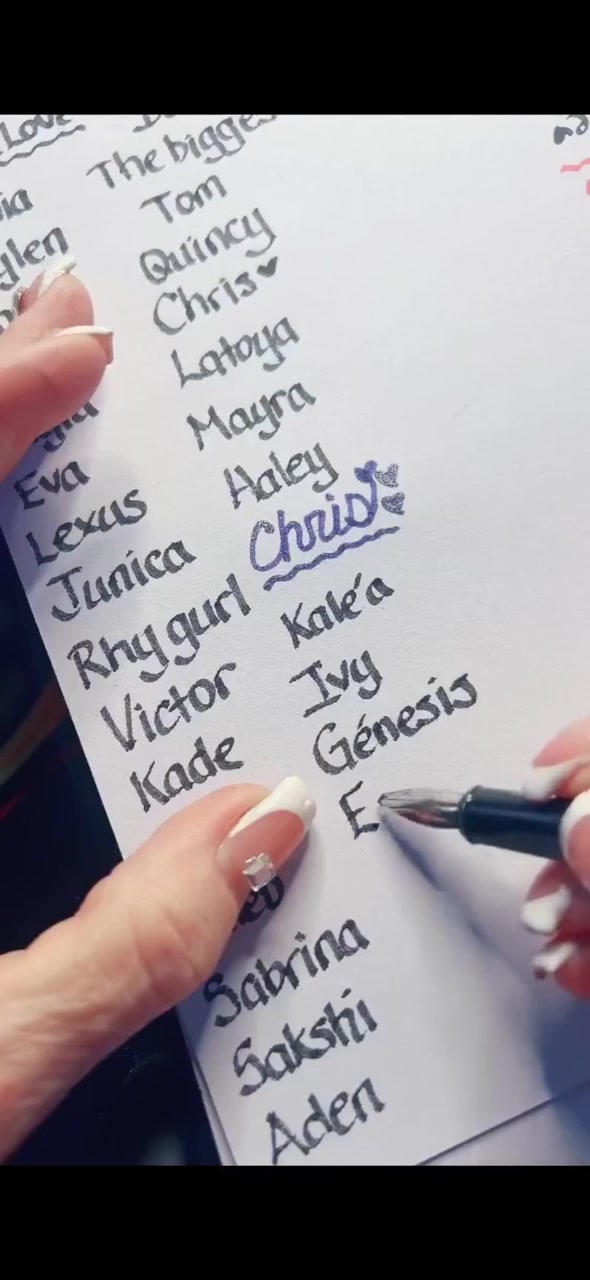 Love
Eva
Lexus
Junica
Rhygurl
Victor
Kade
Sabrina
Sakshi
Aden
The bigges
Tom
Quincy
Chris
Latoya
Mayra
Haley
Chris
Kale'a
Ivy
Génesis
E